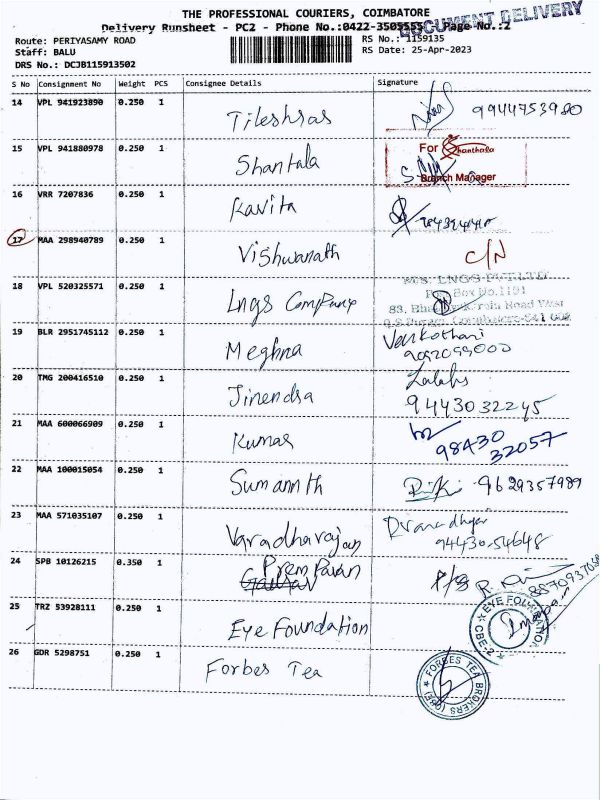 THE PROFESSIONAL COURIERS, COIMBATORE
DOCUMENT DELIVERY
Delivery Runsheet - PC2 - Phone No.:0422-3505555 Page No.:2
Route: PERIYASAMY ROAD RS No.: 1159135
Staff: BALU RS Date: 25-Apr-2023
DRS No.: DCJB115913502
S No Consignment No Weight PCS Consignee Details Signature
14 VPL 941923890 0.250 1 9944753980
15 VPL 941880978 0.250 1 Shantala For Shanthala
Branch Manager
16 VRR 7207836 0.250 1 Kavita
17 MAA 298940789 0.250 1 Vishwanath C/N
18 VPL 520325571 0.250 1 Lngs Company M/S. LNGS PVT.LTD
19 BLR 2951745112 0.250 1 Meghna Venkothari
9092099000
20 TMG 200416510 0.250 1 Jinendra
9443032245
21 MAA 600066909 0.250 1 Kumar 98430
32057
22 MAA 100015054 0.250 1 Sumannth 9629357989
23 MAA 571035107 0.250 1 Varadharajan
94430-54648
24 SPB 10126215 0.350 1 Prem Pavan
25 TRZ 53928111 0.250 1 Eye Foundation EYE FOUNDATION CBE-2
26 GDR 5298751 0.250 1 Forbes Tea FORBES TEA BROKERS (CBE)